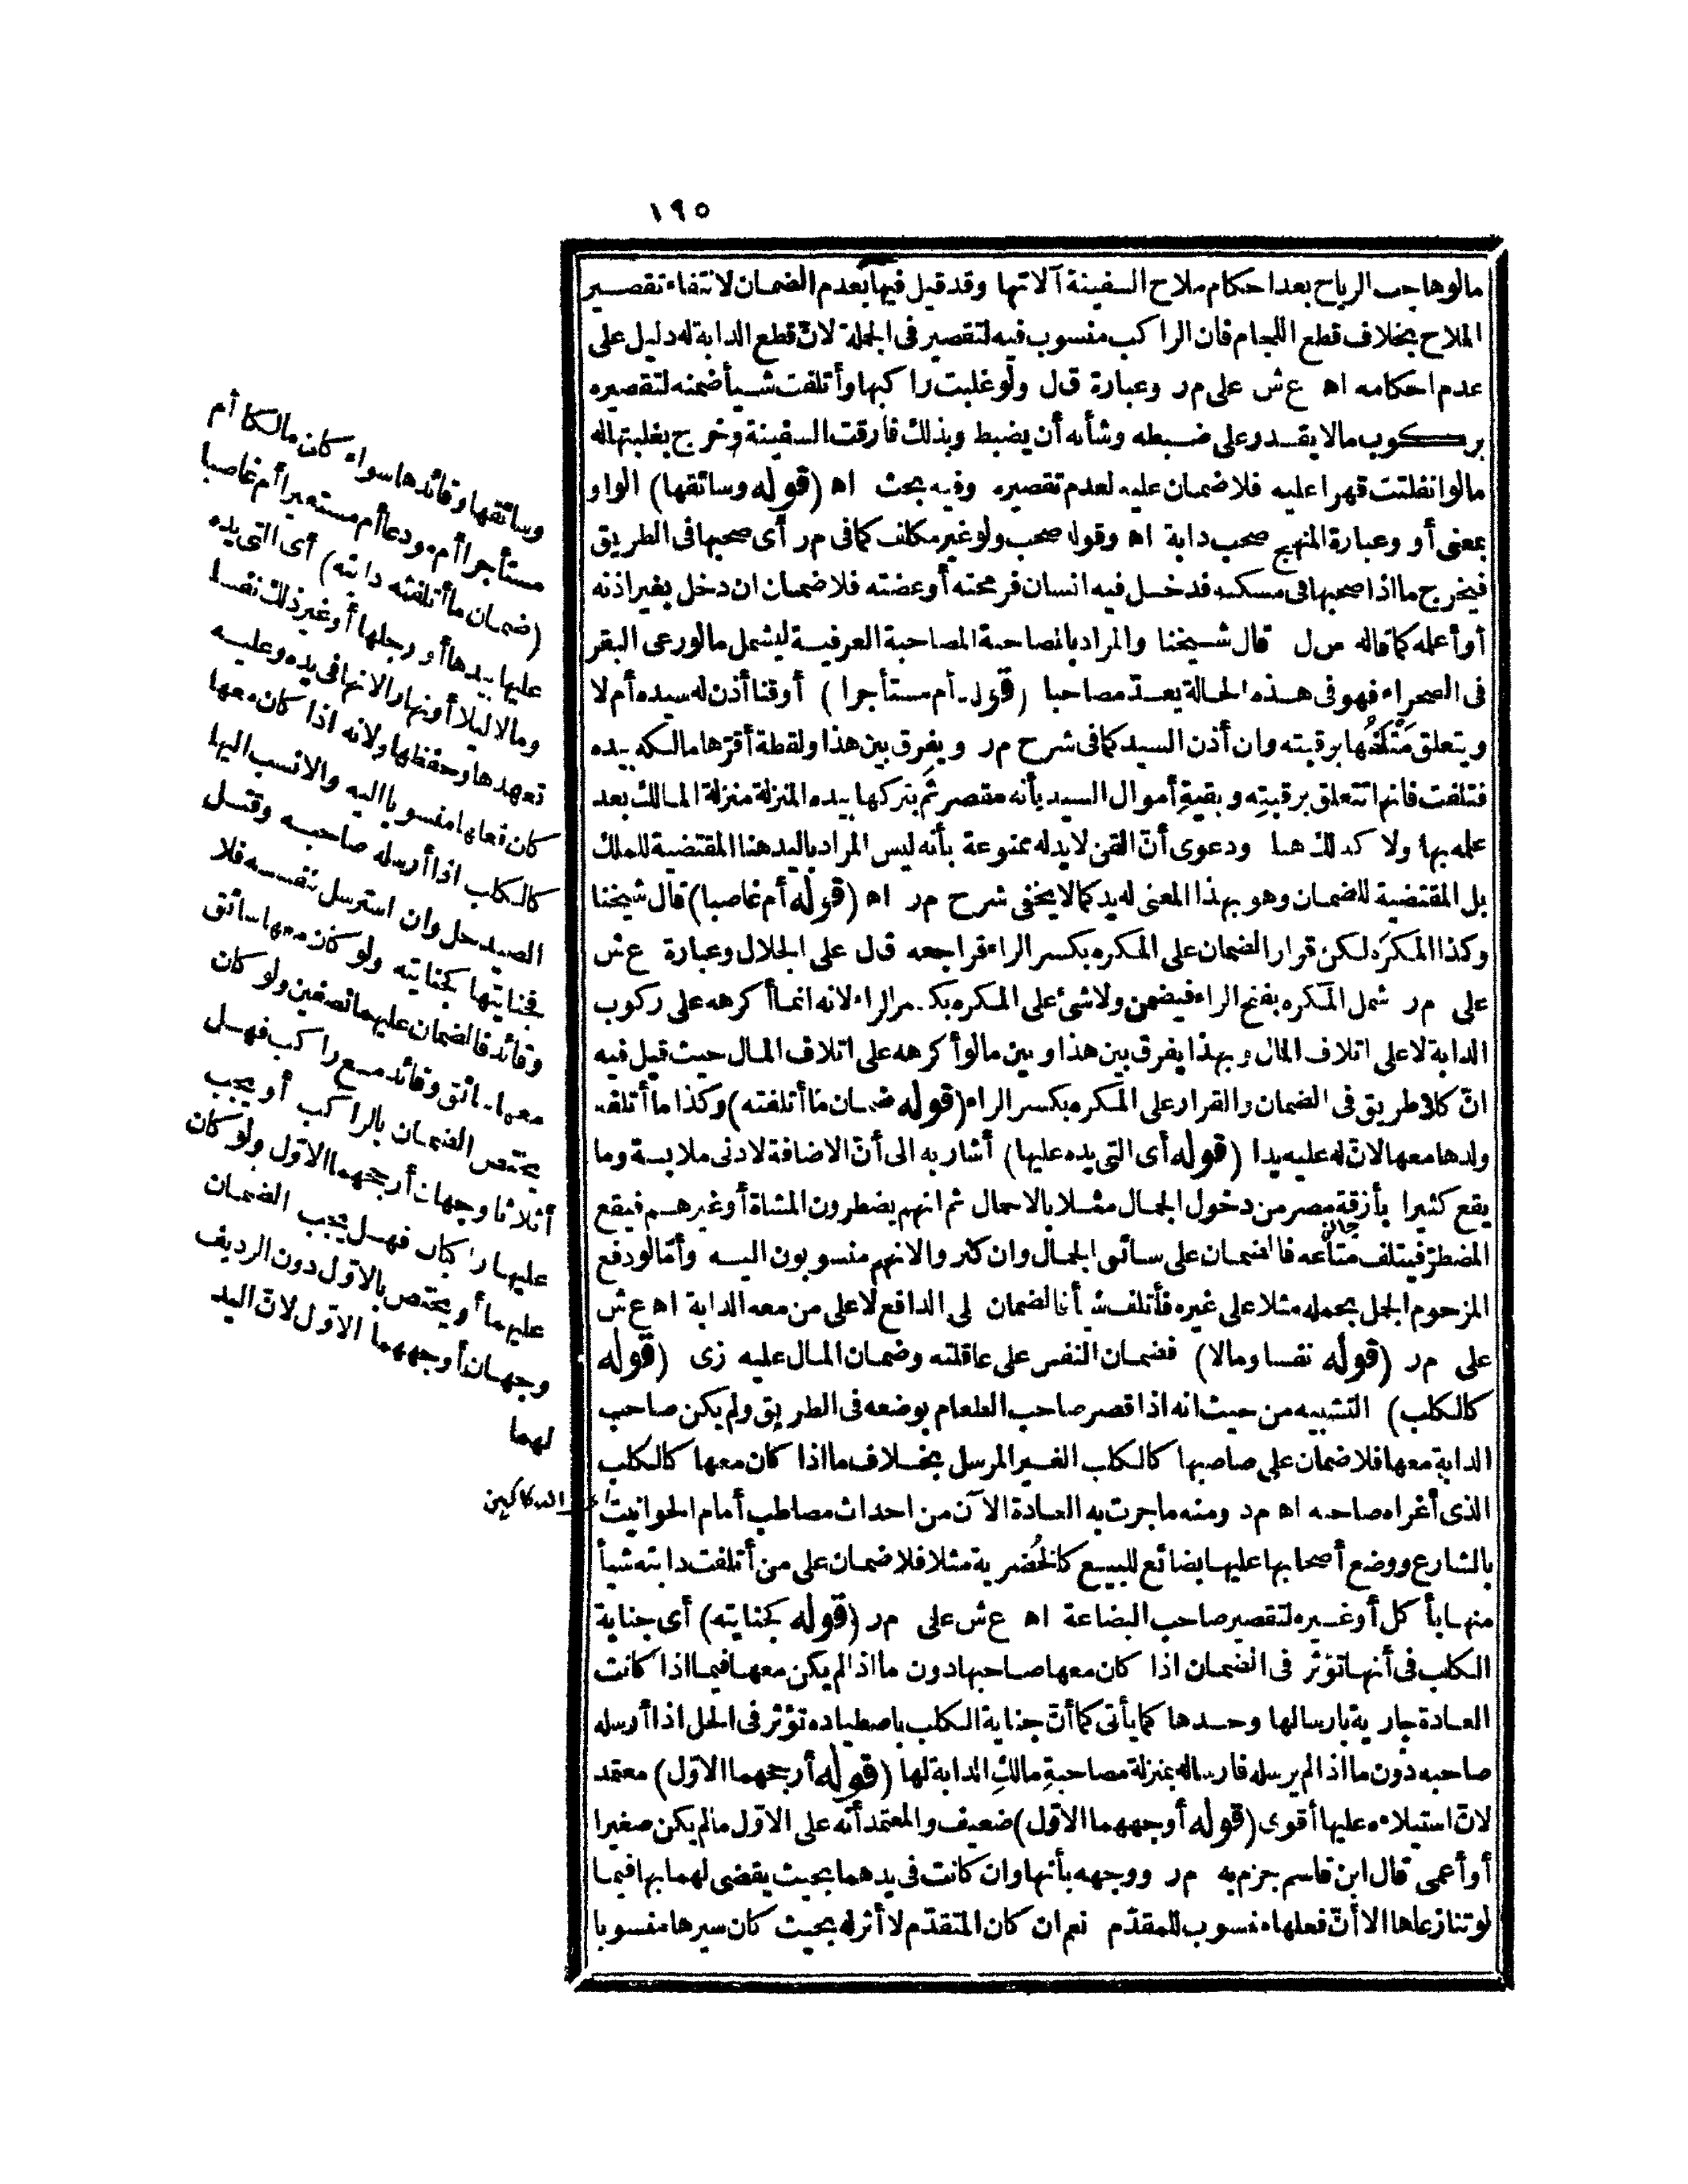 ١٩٥
مالوهاجت الرياح بعد احكام ملاح السفينة آلاتها وقد قيل فيها بعدم الضمان لانتفاء تقصير
الملاح بخلاف قطع اللجام فان الراكب منسوب فيه لتقصير فى الجملة لانّ قطع الدابة له دليل على
عدم احكامه اه ع ش على م ر وعبارة ق ل ولو غلبت راكبها وأتلفت شيأ ضمنه لتقصيره
بركوب مالا يقدر على ضبطه وشأنه أن يضبط وبذلك فارقت السفينة وخرج بغلبتها له
مالو انفلتت قهرا عليه فلا ضمان عليه لعدم تقصيره وفيه بحث اه (قوله وسائقها) الواو
بمعنى أو وعبارة المنهج صحب دابة اه وقوله صحب ولو غير مكلف كما فى م ر أى صحبها فى الطريق
فيخرج ما اذا صحبها فى مسكنه فدخل فيه انسان فرمحته أوعضته فلا ضمان ان دخل بغير اذنه
أو أعلمه كما قاله س ل قال شيخنا والمراد بالمصاحبة المصاحبة العرفية ليشمل مالو رعى البقر
فى الصحراء فهو فى هذه الحالة يعدّ مصاحبا (قوله أم مستأجرا) أو قنا أذن له سيده أم لا
ويتعلق مُتْلَفُها برقبته وان أذن السيد كما فى شرح م ر ويفرق بين هذا ولقطة أقرّها مالكه بيده
فتلفت فانها تتعلق برقبته وبقية أموال السيد بأنه مقصر ثَم بتركها بيده المنزلة منزلة المالك بعد
علمه بها ولا كذلك هنا ودعوى أنّ القن لا يد له ممنوعة بأنه ليس المراد باليد هنا المقتضية للملك
بل المقتضية للضمان وهو بهذا المعنى له يد كما لا يخفى شرح م ر اه (قوله أم غاصبا) قال شيخنا
وكذا المكرَه لكن قرار الضمان على المكره بكسر الراء فراجعه ق ل على الجلال وعبارة ع ش
على م ر شمل المكره بفتح الراء فيضمن ولا شئ على المكره بكسر الراء لانه انما أكرهه على ركوب
الدابة لا على اتلاف المال وبهذا يفرق بين هذا وبين مالو أكرهه على اتلاف المال حيث قيل فيه
انّ كلا طريق فى الضمان والقرار على المكره بكسر الراء (قوله ضمان ما أتلفته) وكذا ما أتلفه
ولدها معها لانّ له عليه يدا (قوله أى التى يده عليها) أشار به الى أنّ الاضافة لادنى ملابسة وما
يقع كثيرا بأزقة مصر من دخول الجمال مثلا بالاحمال ثم انهم يضطرون المشاة أوغيرهم فيقع
المضطرّ فيتلف متاعه فالضمان على سائق الجمال وان كثروا لانهم منسوبون اليه وأمّا لو دفع
المزحوم الجمل بحمله مثلا على غيره فأتلف شيأ فالضمان على الدافع لا على من معه الدابة اه ع ش
على م ر (قوله نفسا ومالا) فضمان النفس على عاقلته وضمان المال عليه زى (قوله
كالكلب) التشبيه من حيث انه اذا قصر صاحب الطعام بوضعه فى الطريق ولم يكن صاحب
الدابة معها فلا ضمان على صاحبها كالكلب الغير المرسل بخلاف ما اذا كان معها كالكلب
الذى أغراه صاحبه اه م د ومنه ما جرت به العادة الآن من احداث مصاطب أمام الحوانيت
بالشارع ووضع أصحابها عليها بضائع للبيع كالخُضرية مثلا فلا ضمان على من أتلفت دابته شيأ
منها بأكل أو غيره لتقصير صاحب البضاعة اه ع ش على م ر (قوله كجنايته) أى جناية
الكلب فى أنها تؤثر فى الضمان اذا كان معها صاحبها دون ما اذا لم يكن معها فيما اذا كانت
العادة جارية بارسالها وحدها كما يأتى كما أنّ جناية الكلب باصطياده تؤثر فى الحل اذا أرسله
صاحبه دون ما اذا لم يرسله فارساله بمنزلة مصاحبة مالك الدابة لها (قوله أرجحهما الاوّل) معتمد
لانّ استيلاءه عليها أقوى (قوله أوجههما الاوّل) ضعيف والمعتمد أنه على الاوّل ما لم يكن صغيرا
أو أعمى قال ابن قاسم جزم به م ر ووجهه بأنها وان كانت فى يدهما بحيث يقضى لهما بها فيما
لو تنازعاها الا أنّ فعلها منسوب للمقدّم نعم ان كان المتقدّم لا أثر له بحيث كان سيرها منسوبا
وسائقها وقائدها سواء كان مالكا أم
مستأجرا أم مودعا أم مستعيرا أم غاصبا
(ضمان ما أتلفته دابته) أى التى يده
عليها بيدها أو رجلها أو غير ذلك نفسا
ومالا ليلا أو نهارا لانها فى يده وعليه
تعهدها وحفظها ولانه اذا كان معها
كان فعلها منسوبا اليه والا نسب اليها
كالكلب اذا أرسله صاحبه وقتل
الصيد حل وان استرسل بنفسه فلا
فجنايتها كجنايته ولو كان معها سائق
وقائد فالضمان عليهما نصفين ولو كان
معها سائق وقائد مع راكب فهل
يختص الضمان بالراكب أو يجب
أثلاثا وجهان أرجحهما الاوّل ولو كان
عليها راكبان فهل يجب الضمان
عليهما أو يختص بالاوّل دون الرديف
وجهان أوجههما الاوّل لانّ اليد
لهما
الدكاكين